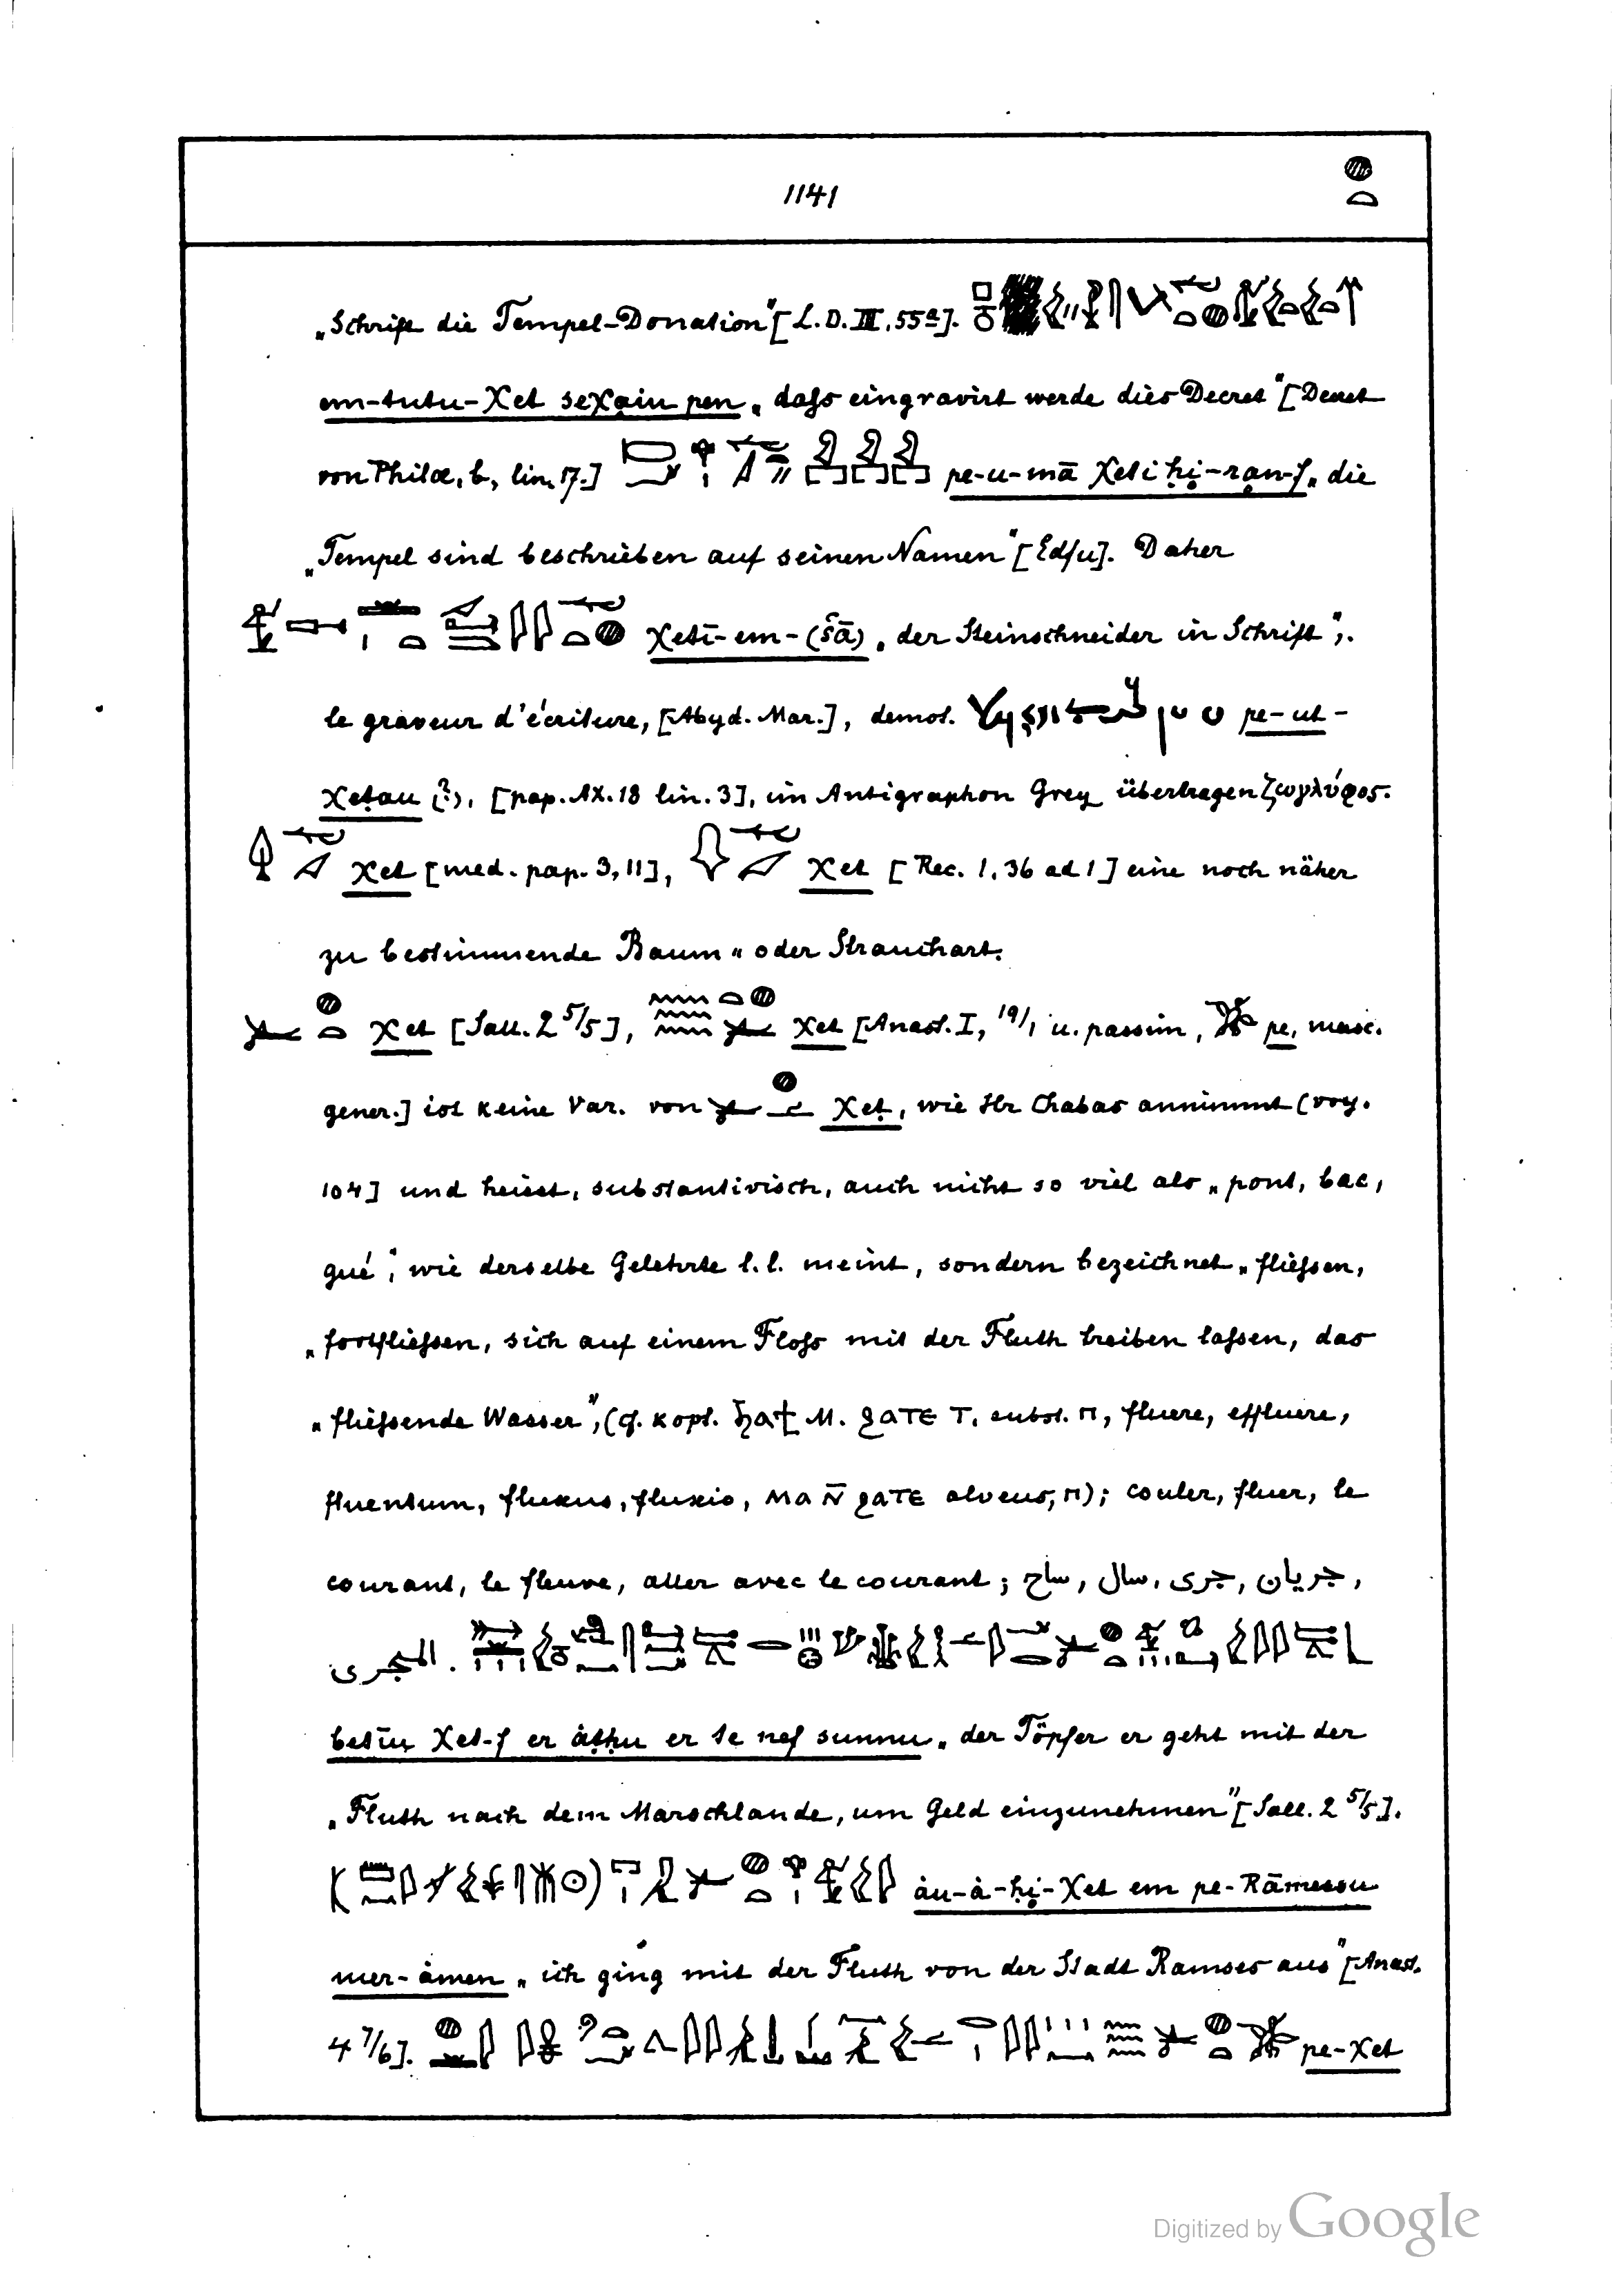 1141
„Schrift die Tempel-Donation“ [L.D. III, 55a].
em-tutu-χet seχaiu pen „dass eingravirt werde dies Decret“ [Decret
von Philæ, b, lin. 17.] pe-u-mā χeti ḥi-ran-f „die
„Tempel sind beschrieben auf seinen Namen“ [Edfu]. Daher
χeti-em-(šā) „der Steinschneider in Schrift“,
le graveur d'écriture, [Abyd. Mar.], demot. pe-ut-
χeṭau (?), [pap. Ax. 18 lin. 3], im Antigraphon Grey übertragen ζωγλύφος.
χet [med. pap. 3, 11], χet [Rec. 1, 36 ad 1] eine noch näher
zu bestimmende Baum- oder Strauchart.
χet [Sall. 2 5/5], χet [Anast. I, 19/1 u. passim, pe, masc.
gener.] ist keine Var. von χeṭ, wie Hr Chabas annimmt (voy.
104] und heisst, substantivisch, auch nicht so viel als „pont, bac,
gué“, wie derselbe Gelehrte l.l. meint, sondern bezeichnet „fliessen,
„fortfliessen, sich auf einem Floss mit der Fluth treiben lassen, das
„fliessende Wasser“, (cf. kopt. ϧⲁϯ M. ϩⲁⲧⲉ T. subst. ⲡ, fluere, effluere,
fluentum, fluxus, fluxio, ⲙⲁ ⲛ̄ ϩⲁⲧⲉ alveus, ⲡ); couler, fluer, le
courant, le fleuve, aller avec le courant; جريان, جرى, سال, ساح,
المجرى.
betiu χet-f er ȧtḥu er te nef sunnu „der Töpfer er geht mit der
„Fluth nach dem Marschlande, um Geld einzunehmen“ [Sall. 2 5/5].
ȧu-ȧ-ḥi-χet em pe-Rāmessu
mer-ȧmen „ich ging mit der Fluth von der Stadt Ramses aus“ [Anast.
4 7/6]. pe-χet
Digitized by Google